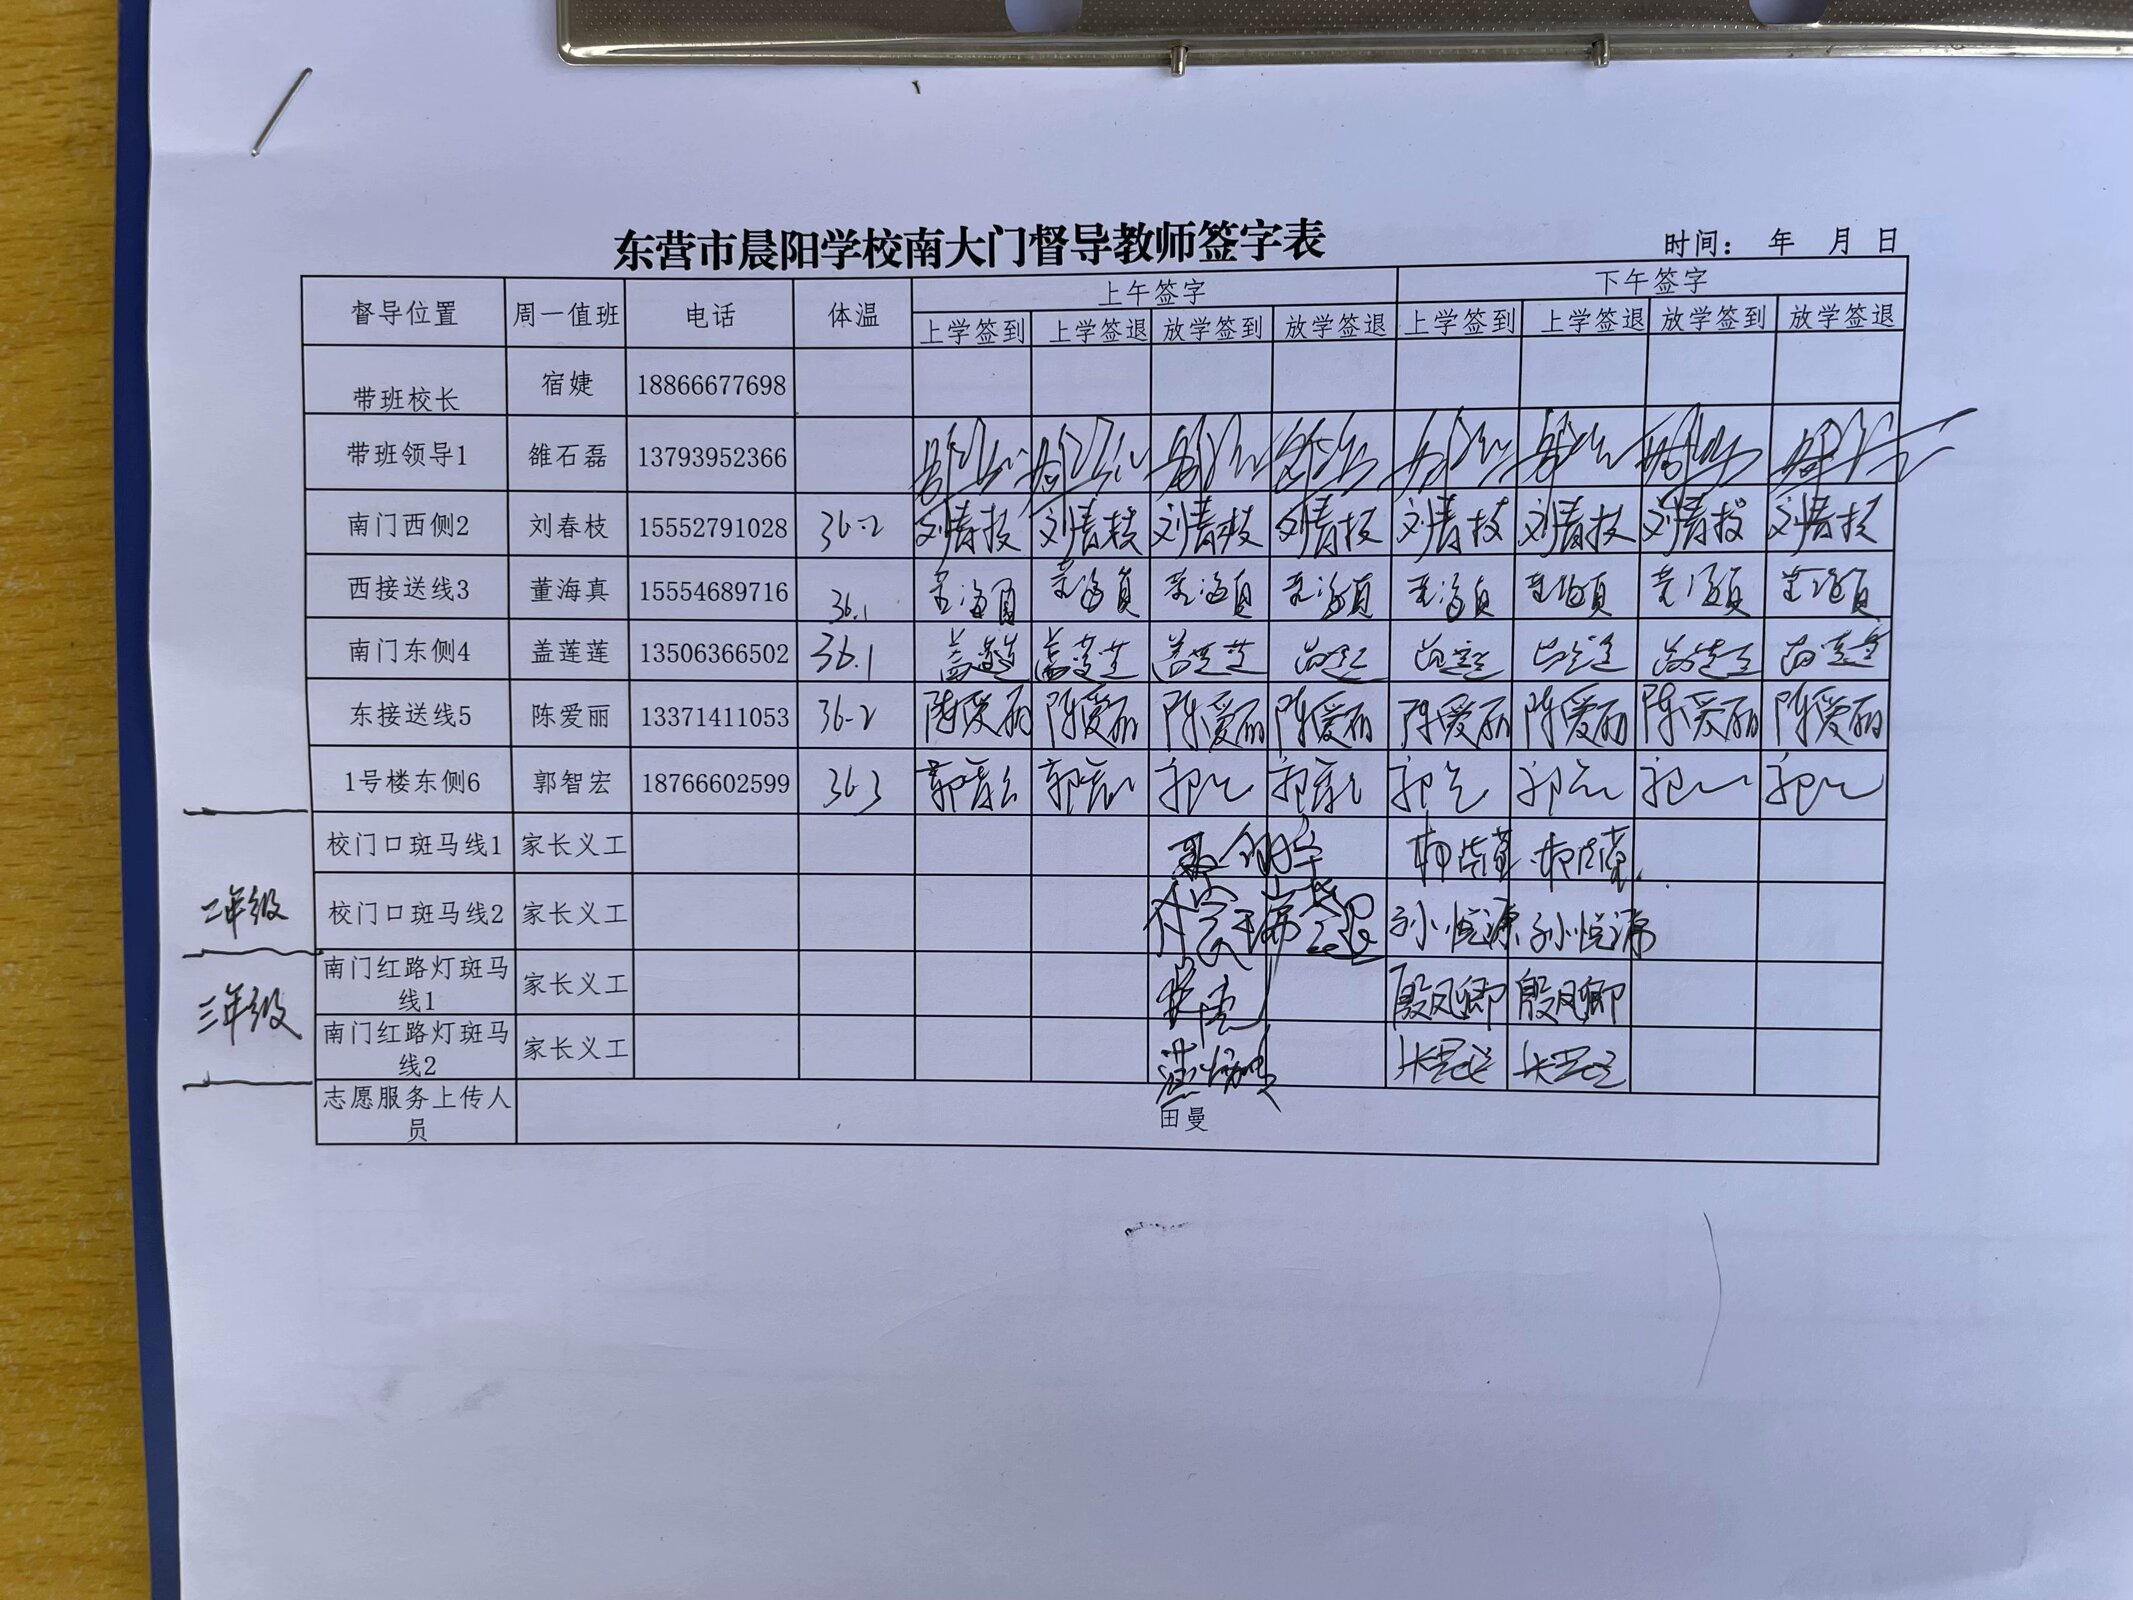 东营市晨阳学校南大门督导教师签字表
时间： 年 月 日
督导位置 周一值班 电话 体温 上午签字 下午签字
上学签到 上学签退 放学签到 放学签退 上学签到 上学签退 放学签到 放学签退
带班校长 宿婕 18866677698
带班领导1 雒石磊 13793952366
南门西侧2 刘春枝 15552791028 36.2 刘春枝 刘春枝 刘春枝 刘春枝 刘春枝 刘春枝 刘春枝 刘春枝
西接送线3 董海真 15554689716 36.1 董海真 董海真 董海真 董海真 董海真 董海真 董海真 董海真
南门东侧4 盖莲莲 13506366502 36.1 盖莲莲 盖莲莲 盖莲莲 盖莲莲 盖莲莲 盖莲莲 盖莲莲 盖莲莲
东接送线5 陈爱丽 13371411053 36-2 陈爱丽 陈爱丽 陈爱丽 陈爱丽 陈爱丽 陈爱丽 陈爱丽 陈爱丽
1号楼东侧6 郭智宏 18766602599 36.3
校门口斑马线1 家长义工
二年级
校门口斑马线2 家长义工 孙悦源 孙悦源
三年级
南门红路灯斑马
线1 家长义工 殷凤卿 殷凤卿
南门红路灯斑马
线2 家长义工
志愿服务上传人
员 田曼